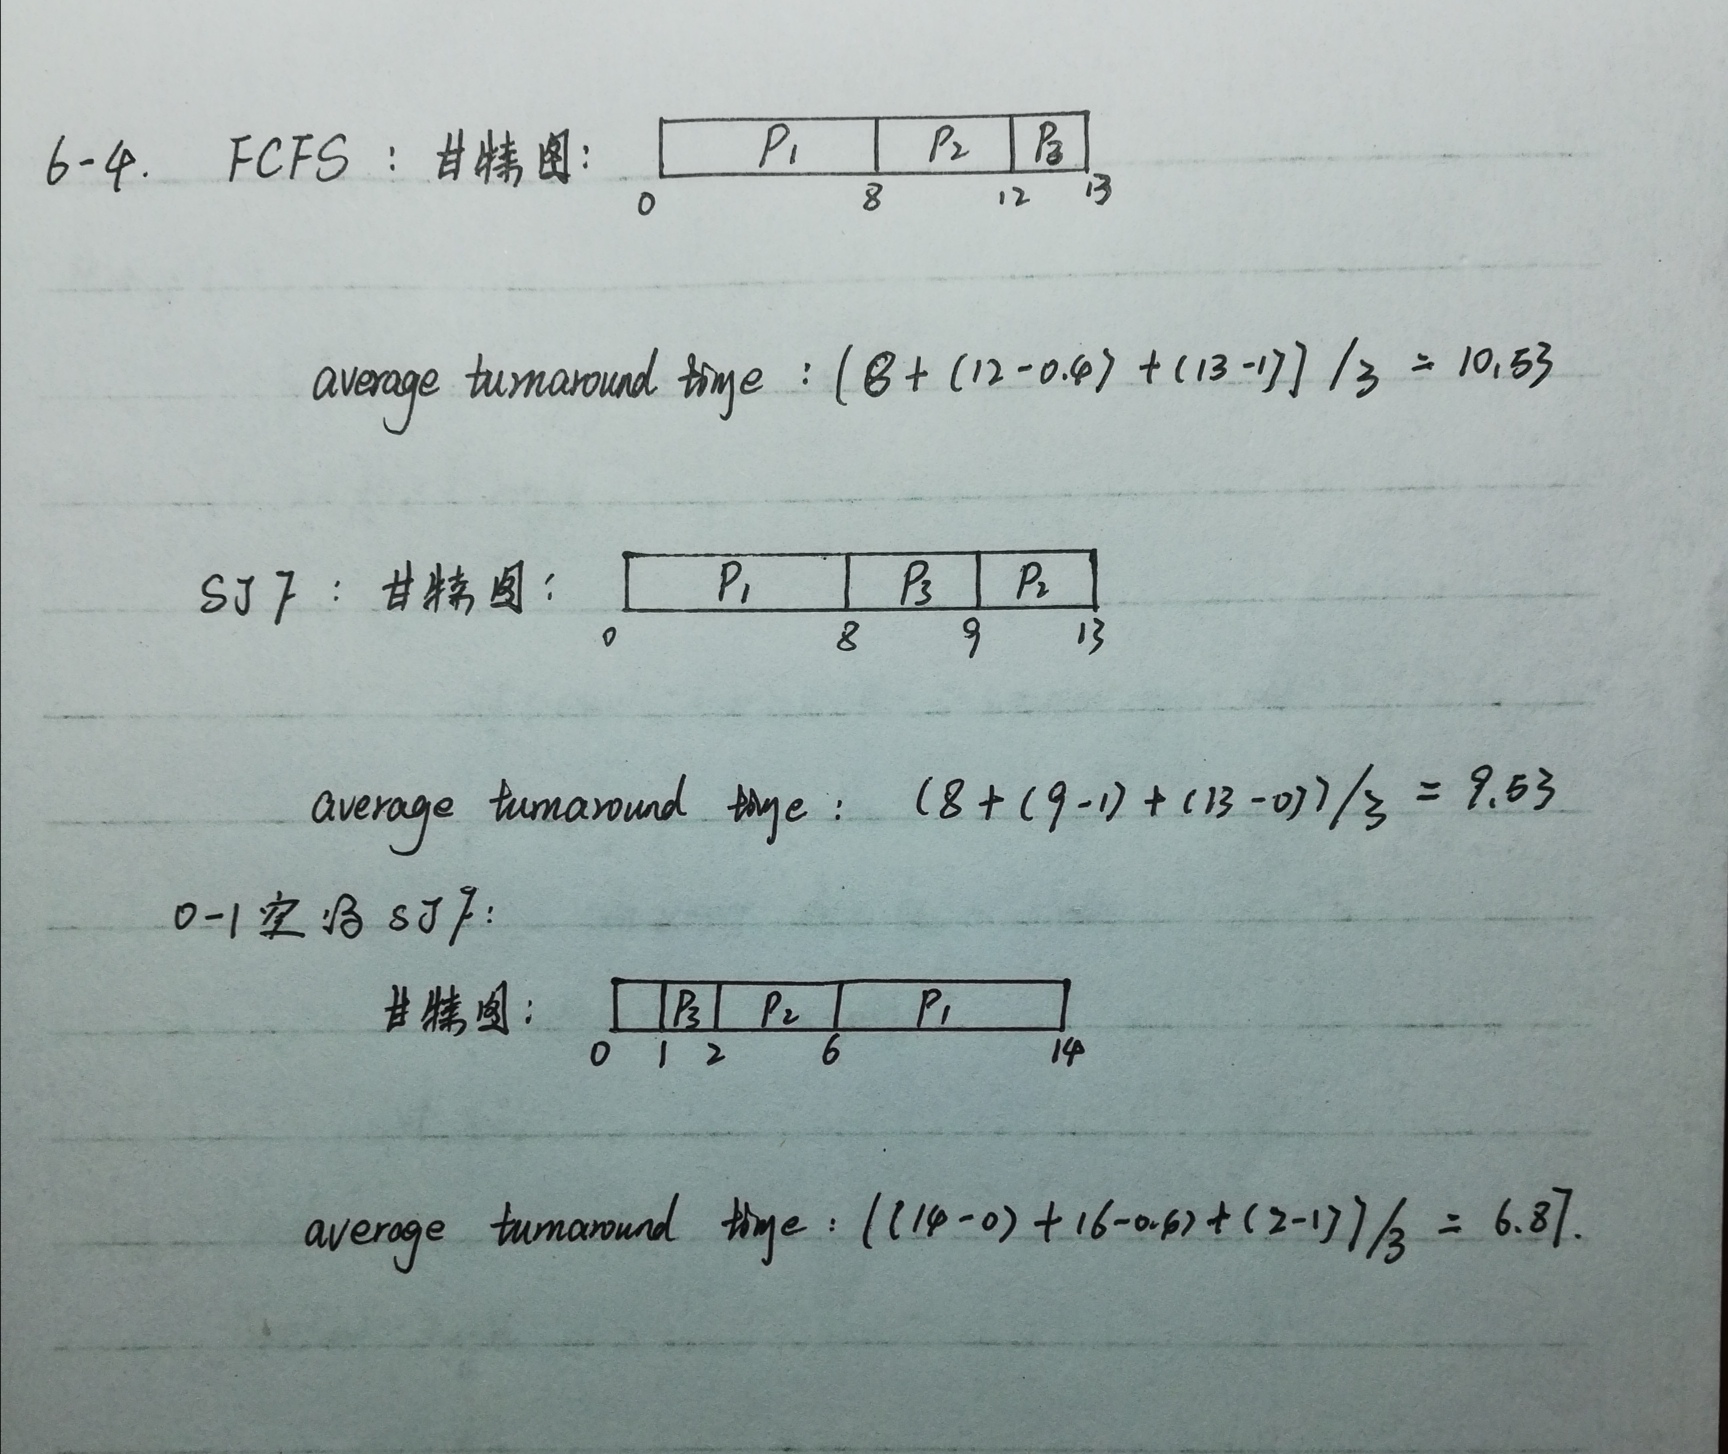 6-4. FCFS : 甘特图: P1 P2 P3
0 8 12 13
average turnaround time : [8+(12-0.4)+(13-1)]/3 = 10.53
SJF : 甘特图: P1 P3 P2
0 8 9 13
average turnaround time: (8+(9-1)+(13-0))/3 = 9.53
0-1空闲 SJF:
甘特图: P3 P2 P1
0 1 2 6 14
average turnaround time: ((14-0)+(6-0.4)+(2-1))/3 = 6.87.